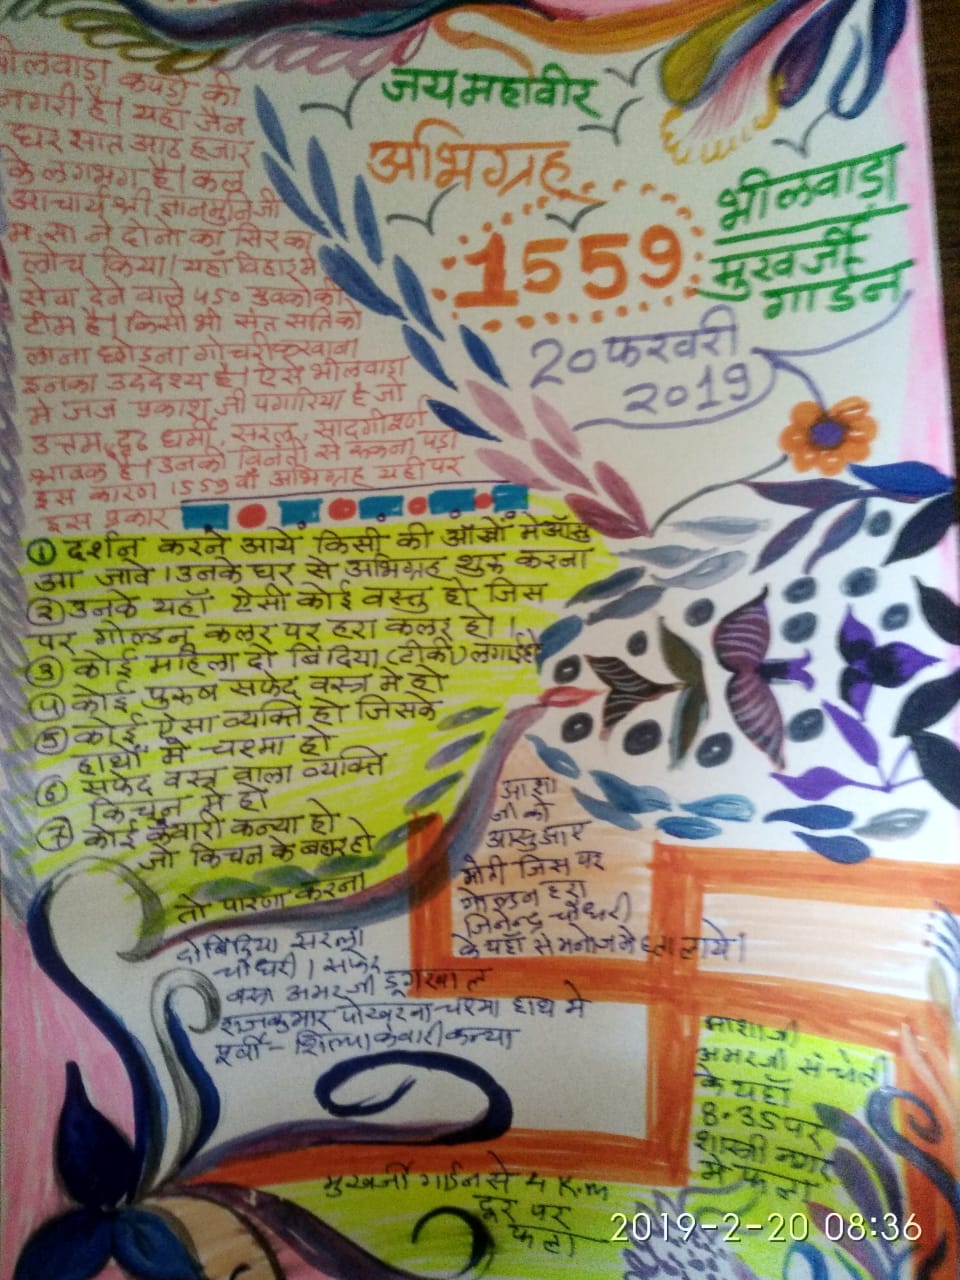 जय महावीर
अभिग्रह
1559
भीलवाड़ा
मुखर्जी
गार्डन
20 फरवरी
2019
भीलवाड़ा कपड़ो की
नगरी है। यहाँ जैन
घर सात आठ हजार
के लगभग है। कल
आचार्य श्री ज्ञानमुनिजी
म.सा ने दोनो का सिर का
लोच किया। यहाँ विहार मे
सेवा देने वाले 450 युवको की
टीम है। किसी भी संत सति को
लाना छोडना गोचरी
इनका उददेश्य है। ऐसे भीलवाडा
मे जज प्रकाश जी पगारिया है जो
उत्तम, दृढ धर्मी, सरल,
श्रावक है। उनकी विनती से रूकना पड़ा
इस कारण 1559 वाँ अभिग्रह यही पर
इस प्रकार
① दर्शन करने आये किसी की आँखों में आँसु
आ जावे। उनके घर से अभिग्रह शुरू करना
② उनके यहाँ ऐसी कोई वस्तु हो जिस
पर गोल्डन कलर पर हरा कलर हो।
③ कोई महिला दो बिंदिया (टीकी) लगाई हो
④ कोई पुरुष सफेद वस्त्र मे हो
⑤ कोई ऐसा व्यक्ति हो जिसके
हाथो मे चश्मा हो
⑥ सफेद वस्त्र वाला व्यक्ति
किचन मे हो
⑦ कोई कुंवारी कन्या हो
जो किचन के बहार हो
तो पारणा करना
आशा
जी को
आसु आर
मोती जिस पर
गोल्डन हरा
जिनेन्द्र चौधरी
के यहाँ से मनोज मेहता लाये।
दो बिंदिया सरला
चौधरी। सफेद
वस्त्र अमर जी डूंगरवाल
राजकुमार पोखरना चश्मा हाथ मे
पूर्वी - शिल्पा कंवारी कन्या
आशाजी
अमरजी संचेती
के यहाँ
8.35 पर
शास्त्री नगर
मे फला
मुखर्जी गार्डन से 4 K.m
दूर पर
फला
2019-2-20 08:36